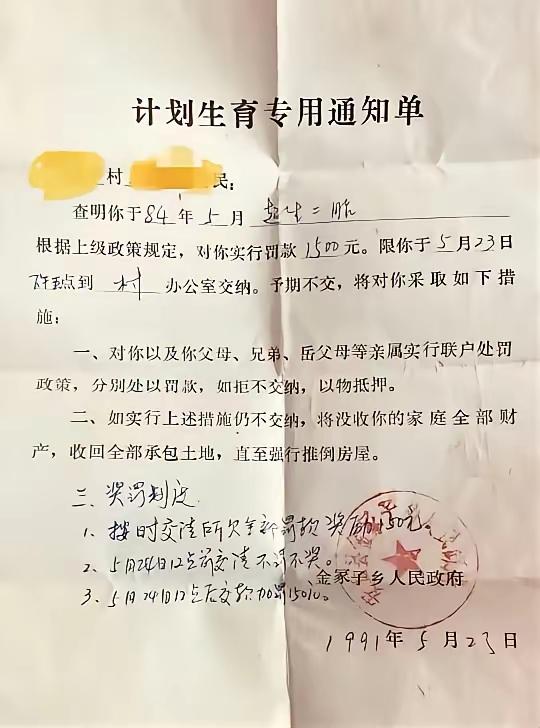 计划生育专用通知单
村 民:
查明你于84年5月超生二胎
根据上级政策规定，对你实行罚款1500元。限你于5月23日
到村办公室交纳。予期不交，将对你采取如下措
施:
一、对你以及你父母、兄弟、岳父母等亲属实行联户处罚
政策，分别处以罚款，如拒不交纳，以物抵押。
二、如实行上述措施仍不交纳，将没收你的家庭全部财
产，收回全部承包土地，直至强行推倒房屋。
三、奖罚制度
1、按时交清所欠全部罚款奖励150元。
2、5月24日12点前交清不罚不奖。
3、5月24日12点后交款加罚150元。
金家子乡人民政府
1991年5月23日